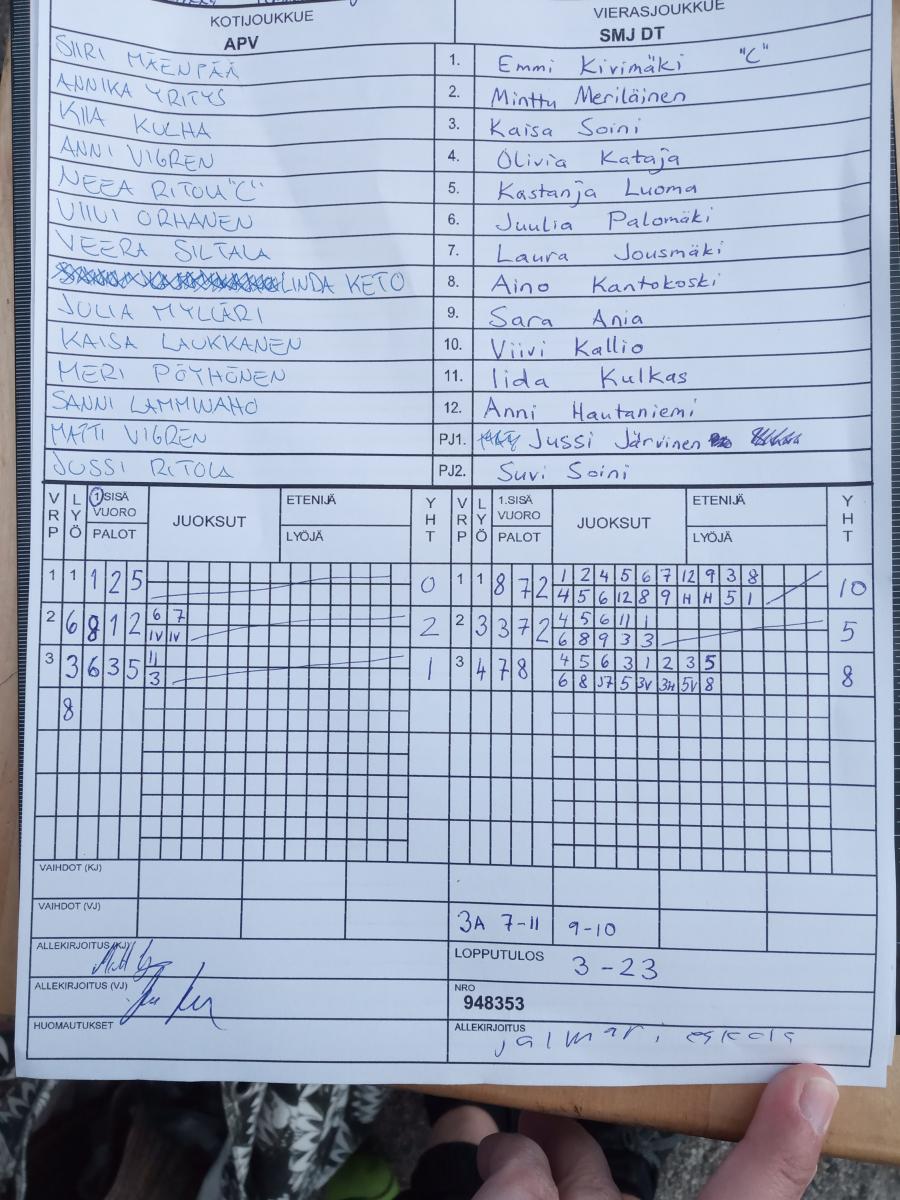 KOTIJOUKKUE VIERASJOUKKUE
APV SMJ DT
SIIRI MÄENPÄÄ 1. Emmi Kivimäki "C"
ANNIKA YRITYS 2. Minttu Meriläinen
KIIA KULHA 3. Kaisa Soini
ANNI VIGREN 4. Olivia Kataja
NEEA RITOLA "C" 5. Kastanja Luoma
VIIVI ORHANEN 6. Juulia Palomäki
VEERA SILTALA 7. Laura Jousmäki
LINDA KETO 8. Aino Kantokoski
JULIA MYLLÄRI 9. Sara Ania
KAISA LAUKKANEN 10. Viivi Kallio
MERI PÖYHÖNEN 11. Iida Kulkas
SANNI LAMMINAHO 12. Anni Hautaniemi
MATTI VIGREN PJ1. Jussi Järvinen
JUSSI RITOLA PJ2. Suvi Soini
VRP LYÖ 1.SISÄ VUORO PALOT JUOKSUT ETENIJÄ LYÖJÄ YHT VRP LYÖ 1.SISÄ VUORO PALOT JUOKSUT ETENIJÄ LYÖJÄ YHT
1 1 1 2 5 0 1 1 8 7 2 1 2 4 5 6 7 12 9 3 8 10
4 5 6 12 8 9 H H 5 1
2 6 8 1 2 6 7 2 2 3 3 7 2 4 5 6 11 1 5
IV IV 6 8 9 3 3
3 3 6 3 5 11 1 3 4 7 8 4 5 6 3 1 2 3 5 8
3 6 8 J7 5 3V 3H 5V 8
8
VAIHDOT (KJ)
VAIHDOT (VJ) 3A 7-11 9-10
ALLEKIRJOITUS (KJ) LOPPUTULOS 3-23
ALLEKIRJOITUS (VJ) NRO
948353
HUOMAUTUKSET ALLEKIRJOITUS
jalmari eskola